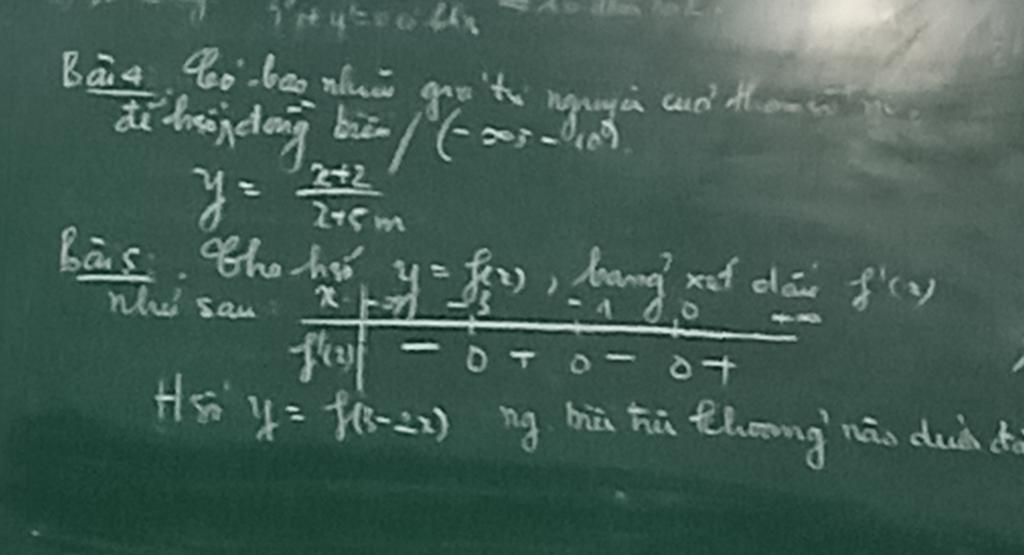 Bài 4. Có bao nhiêu giá trị nguyên của tham số m
để hsố đồng biến / (-∞; -10)
y = x+2 / x+5m
Bài 5. Cho hsố y = f(x), bảng xét dấu f'(x)
như sau:
x -∞ -3 -1 0 +∞
f'(x) - 0 + 0 - 0 +
Hsố y = f(3-2x) ng. biến trên khoảng nào dưới